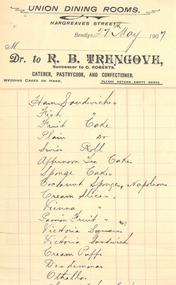 UNION DINING ROOMS,
HARGREAVES STREET
Bendigo, 27 May 1907
M
Dr. to R. B. TRENGOVE,
Successor to O. ROBERTS,
CATERER, PASTRYCOOK, AND CONFECTIONER.
WEDDING CAKES ON HAND. PLEASE RETURN EMPTY GOODS.
Ham Sandwiches
Fish "
Fruit Cake
Plain Do
Swiss Roll
Afternoon Tea Cake
Sponge Cake
Sponges, Napoleons
Cream Slices
Vienna "
Passion Fruit "
Victoria
Victoria Sandwich
Cream Puffs
Othellos